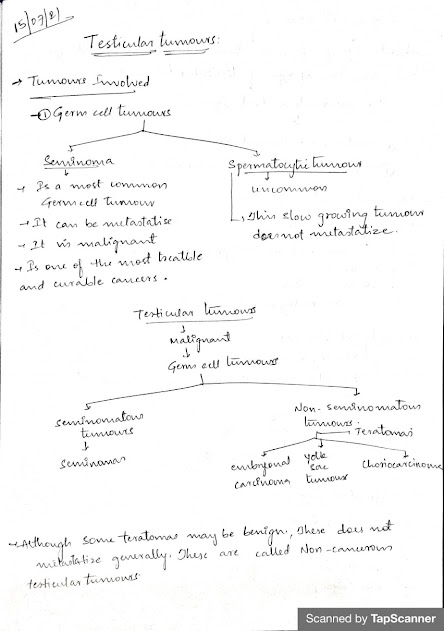 15/07/21
Testicular tumours:
→ Tumours Involved
① Germ cell tumours
Seminoma
→ Is a most common
Germ cell Tumour
→ It can be metastatise
→ It is malignant
→ Is one of the most treatble
and curable cancers.
Spermatocytic tumour
uncommon
This slow growing tumour
does not metastatize.
Testicular tumours
Malignant
Germ cell tumours
Seminomatous
tumours
Seminomas
Non-seminomatous
tumours.
Teratomas
embryonal
carcinoma
yolk
sac
tumours
Choriocarcinoma
→ Although some teratomas may be benign, these does not
metastatize generally. These are called Non-cancerous
testicular tumours.
Scanned by TapScanner